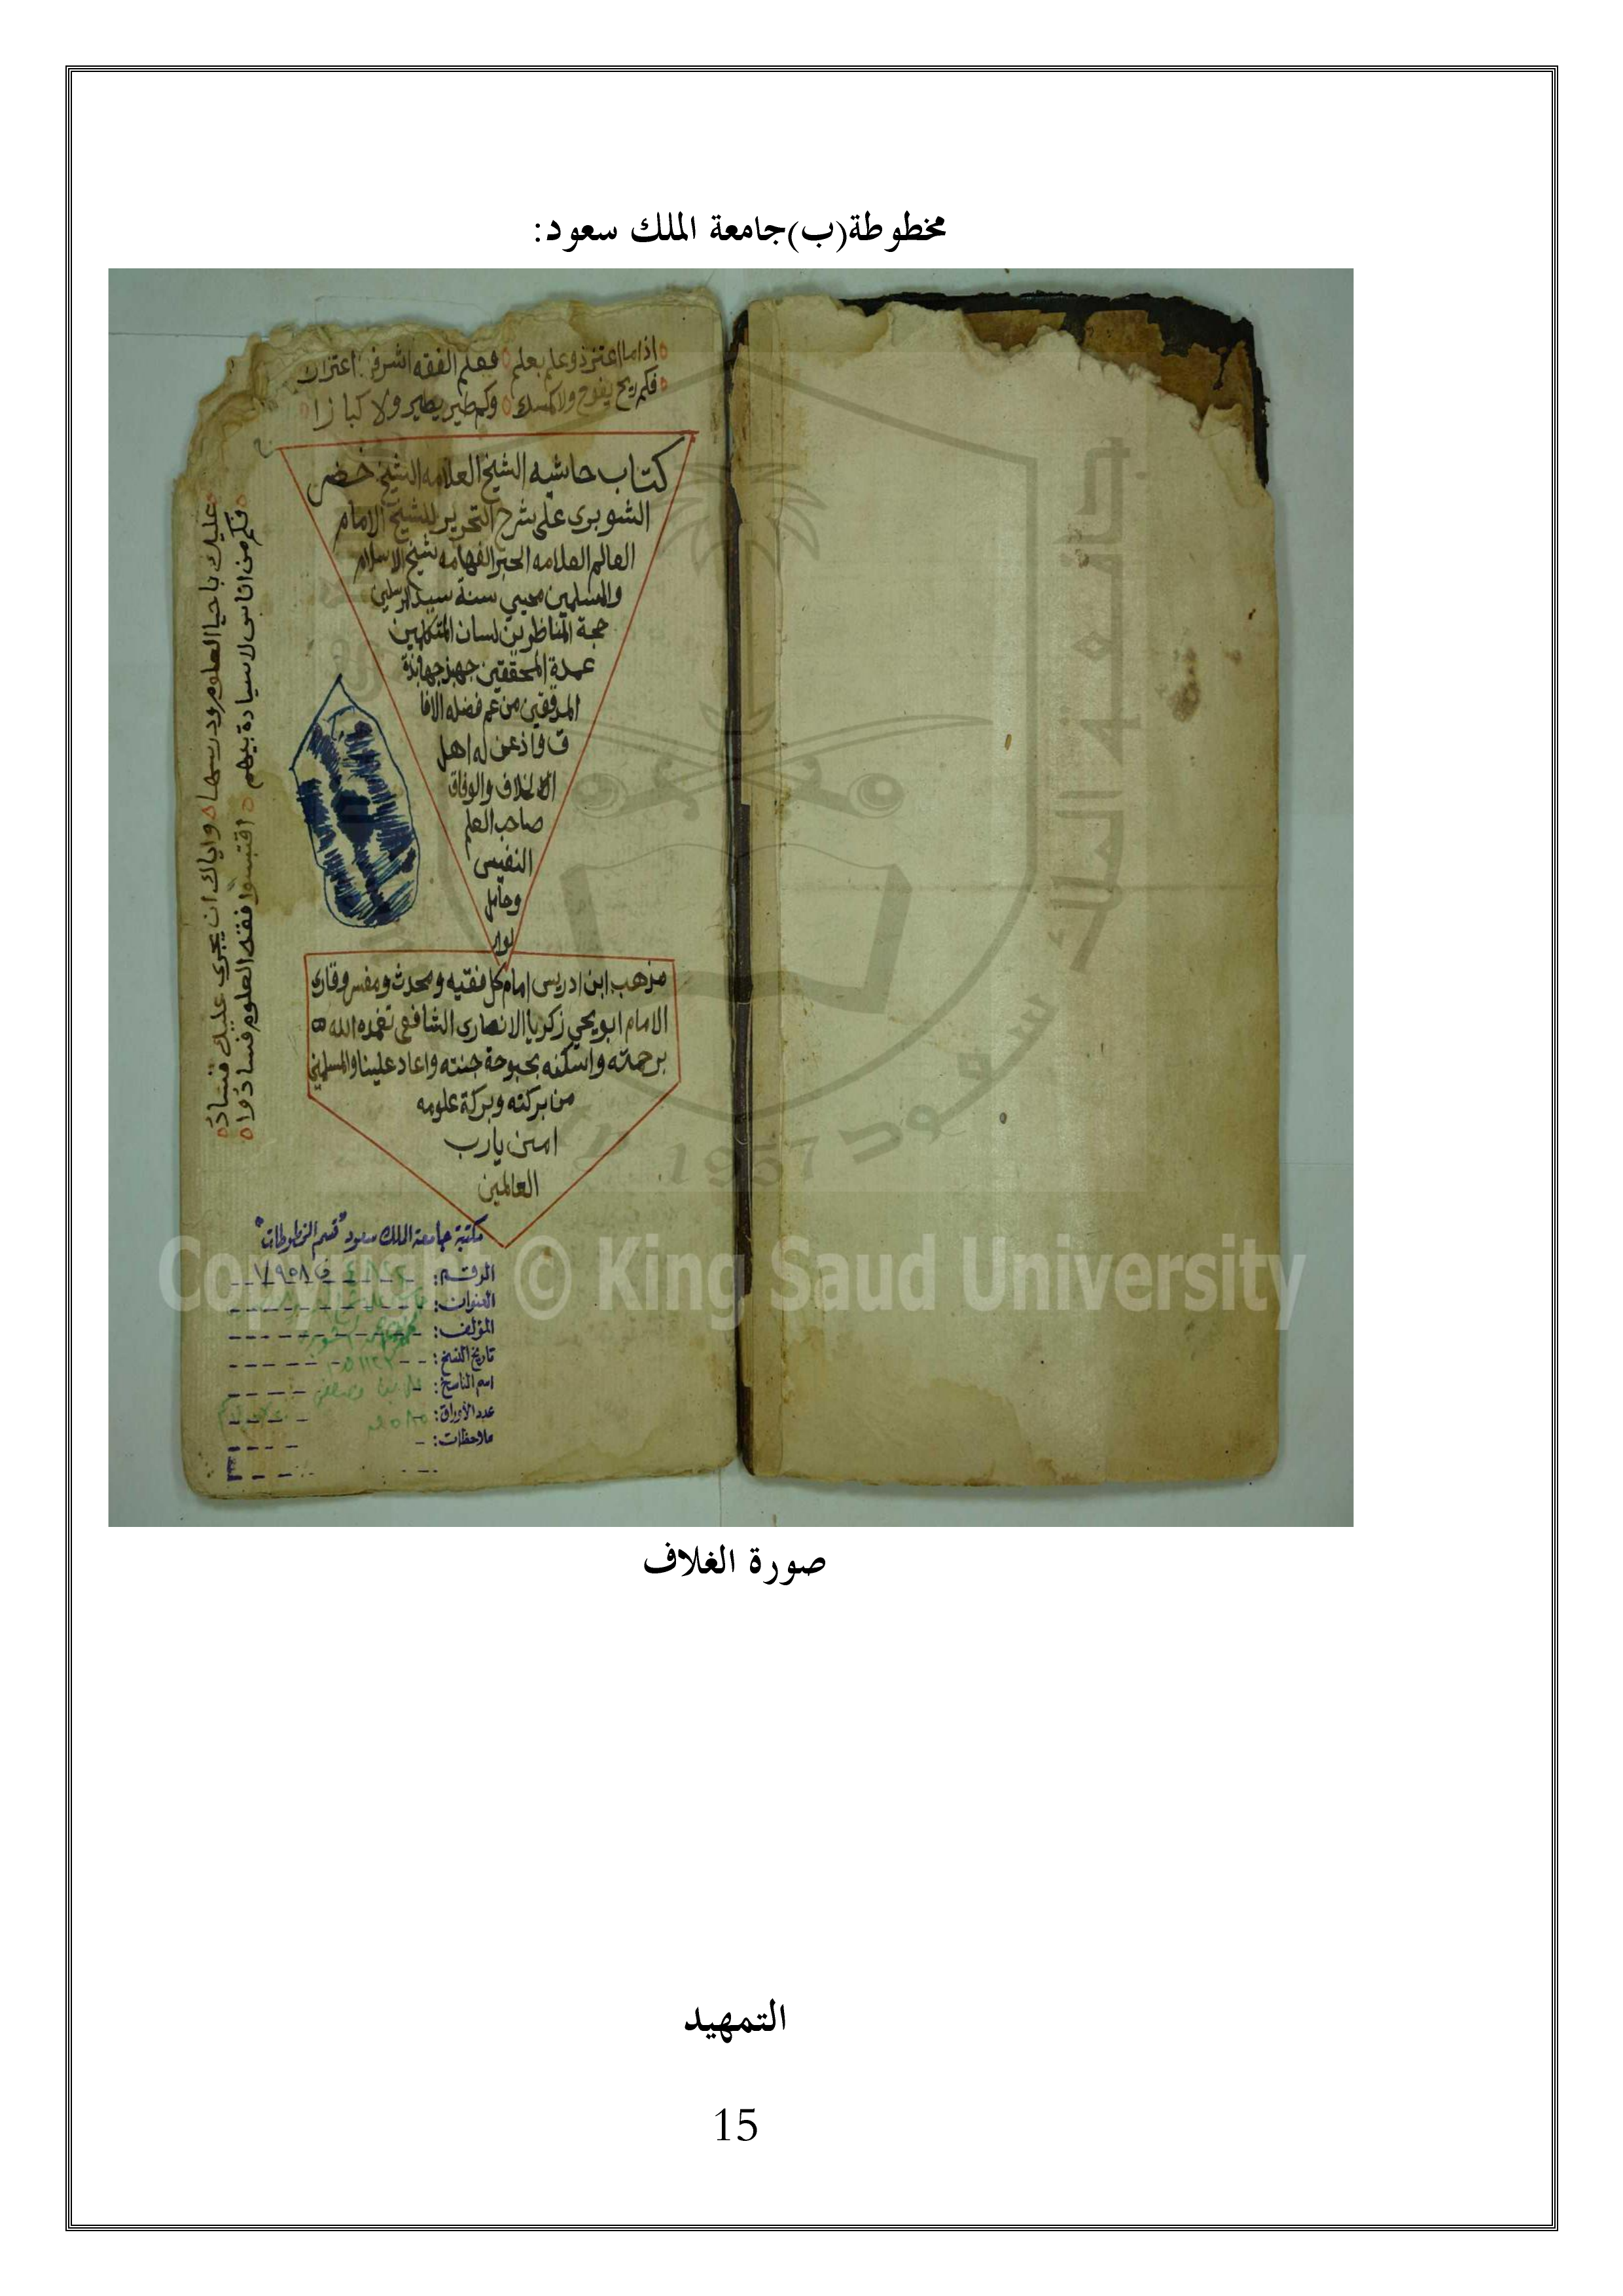 مخطوطة(ب)جامعة الملك سعود:
اذا ما اعتز ذو علم بعلم فعلم الفقه اشرف اعتزاز
فكم ريح يفوح ولا كمسك وكم طير يطير ولا كبازا
كتاب حاشيه الشيخ العلامه الشيخ خضر
الشوبرى على شرح التحرير للشيخ الامام
العالم العلامه الحبر الفهامه شيخ الاسلام
والمسلمين محيي سنة سيد المرسلين
حجة المناظرين لسان المتكلمين
عمدة المحققين جهبذ جهابذة
المدققين من عم فضله الافا
ق واذعن له اهل
الخلاف والوفاق
صاحب العلم
النفيس
وحامل
لواء
مذهب ابن ادريس امام كل فقيه ومحدث ومفسر وقارئ
الامام ابو يحي زكريا الانصارى الشافعى تغمده الله
برحمته واسكنه بحبوحة جنته واعاد علينا والمسلمين
من بركته وبركة علومه
امين يارب
العالمين
عليك باحيا العلوم ودرسها واياك ان يجرى عليك فساد
فكم من اناس لا سيادة بينهم اقتبسوا فقه العلوم فسادوا
مكتبة جامعة الملك سعود "قسم المخطوطات"
الرقم: ٧٩٥٨
العنوان:
المؤلف:
تاريخ النسخ:
اسم الناسخ:
عدد الأوراق:
ملاحظات:
جامعة الملك سعود
1957
Copyright © King Saud University
صورة الغلاف
التمهيد
15